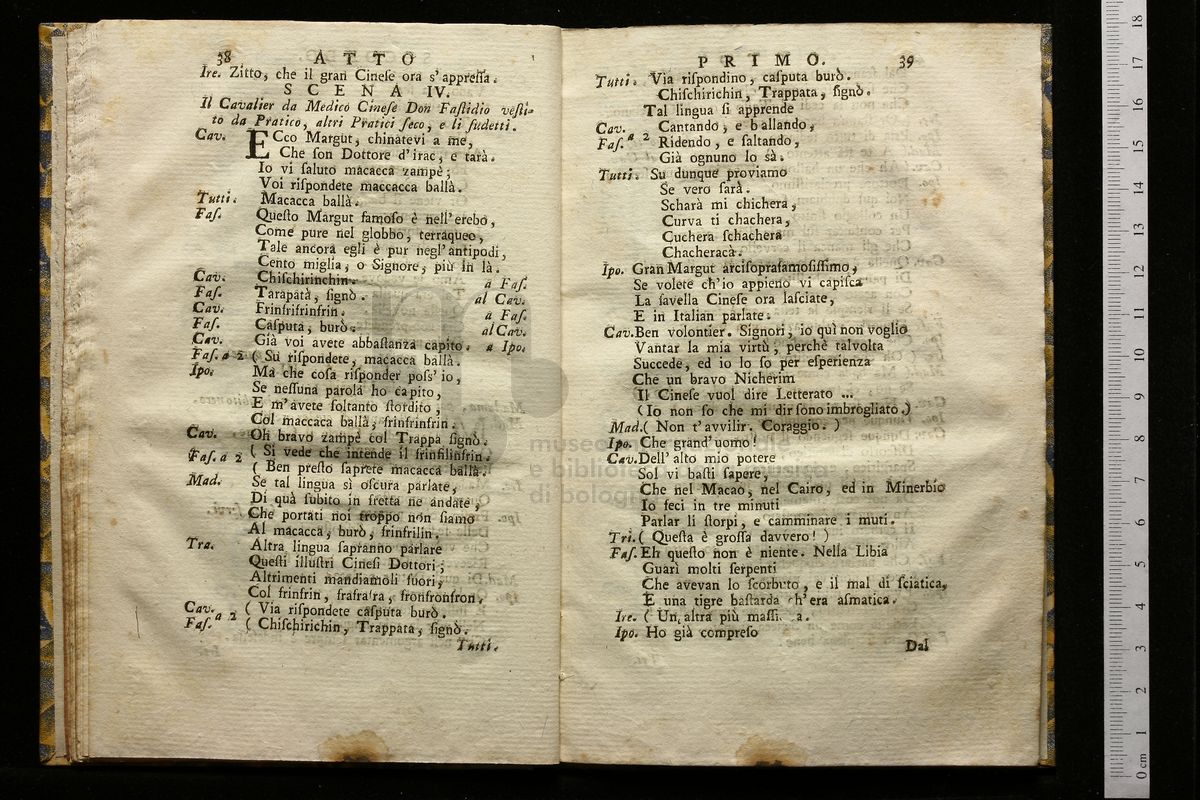 38 ATTO
Ire. Zitto, che il gran Cineſe ora s'appreſſa.
SCENA IV.
Il Cavalier da Medico Cineſe Don Faſtidio veſti-
to da Pratico, altri Pratici ſeco, e li ſudetti.
Cav. ECco Margut, chinatevi a me,
Che ſon Dottore d'irac, e tarà.
Io vi ſaluto macacca zampè;
Voi riſpondete maccacca ballà.
Tutti. Macacca ballà.
Faſ. Queſto Margut famoſo è nell'erebo,
Come pure nel globbo, terraqueo,
Tale ancora egli è pur negl'antipodi,
Cento miglia, o Signore, più in là.
Cav. Chiſchirinchin. a Faſ.
Faſ. Tarapatà, ſignò. al Cav.
Cav. Frinfrifrinfrin. a Faſ.
Faſ. Caſputa, burò. al Cav.
Cav. Già voi avete abbaſtanza capito. a Ipo.
Faſ. a 2 ( Su riſpondete, macacca ballà.
Ipo. Ma che coſa riſponder poſs'io,
Se neſſuna parola ho capito,
E m'avete ſoltanto ſtordito,
Col maccaca ballà, frinfrinfrin.
Cav. Oh bravo zampè col Trappa ſignò.
Faſ. a 2 ( Si vede che intende il frinfilinfrin.
( Ben preſto ſaprete macacca ballà.
Mad. Se tal lingua sì oſcura parlate,
Di quà ſubito in fretta ne andate,
Che portati noi troppo non ſiamo
Al macacca, burò, frinfrilin.
Tra. Altra lingua ſapranno parlare
Queſti illuſtri Cineſi Dottori;
Altrimenti mandiamoli fuori,
Col frinfrin, frafrafra, fronfronfron.
Cav. ( Via riſpondete caſputa burò.
Faſ. a 2 ( Chiſchirichin, Trappata, ſignò.
Tutti.
PRIMO. 39
Tutti. Via riſpondino, caſputa burò.
Chiſchirichin, Trappata, ſignò.
Tal lingua ſi apprende
Cav. Cantando, e ballando,
Faſ. a 2 Ridendo, e ſaltando,
Già ognuno lo sà.
Tutti. Su dunque proviamo
Se vero ſarà.
Scharà mi chichera,
Curva ti chachera,
Cuchera ſchachera
Chacheracà.
Ipo. Gran Margut arciſoprafamoſiſſimo,
Se volete ch'io appieno vi capiſca
La favella Cineſe ora laſciate,
E in Italian parlate.
Cav. Ben volontier. Signori, io quì non voglio
Vantar la mia virtù, perchè talvolta
Succede, ed io lo ſo per eſperienza
Che un bravo Nicherim
Il Cineſe vuol dire Letterato ...
(Io non ſo che mi dir ſono imbrogliato.)
Mad. ( Non t'avvilir. Coraggio. )
Ipo. Che grand'uomo!
Cav. Dell'alto mio potere
Sol vi baſti ſapere,
Che nel Macao, nel Cairo, ed in Minerbio
Io feci in tre minuti
Parlar li ſtorpi, e camminare i muti.
Tri. ( Queſta è groſſa davvero! )
Faſ. Eh queſto non è niente. Nella Libia
Guarì molti ſerpenti
Che avevan lo ſcorbuto, e il mal di ſciatica,
E una tigre baſtarda ch'era aſmatica.
Ire. ( Un altra più
Ipo. Ho già compreſo
Dal
museo
e biblioteca
di bologna
0 cm 1 2 3 4 5 6 7 8 9 10 11 12 13 14 15 16 17 18